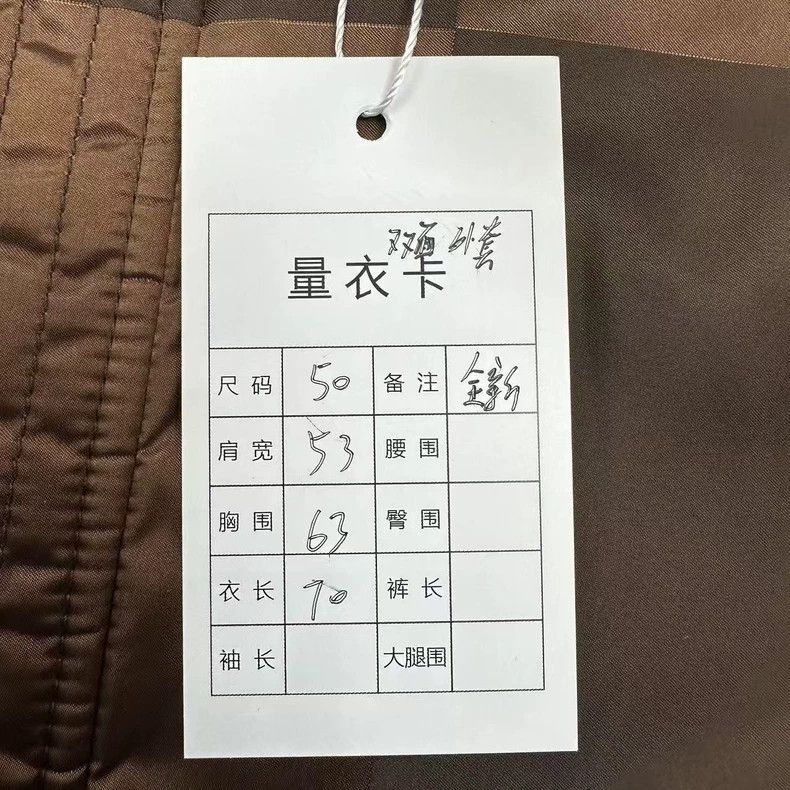 双面外套
量衣卡
尺码 50 备注 全新
肩宽 53 腰围
胸围 63 臀围
衣长 70 裤长
袖长 大腿围